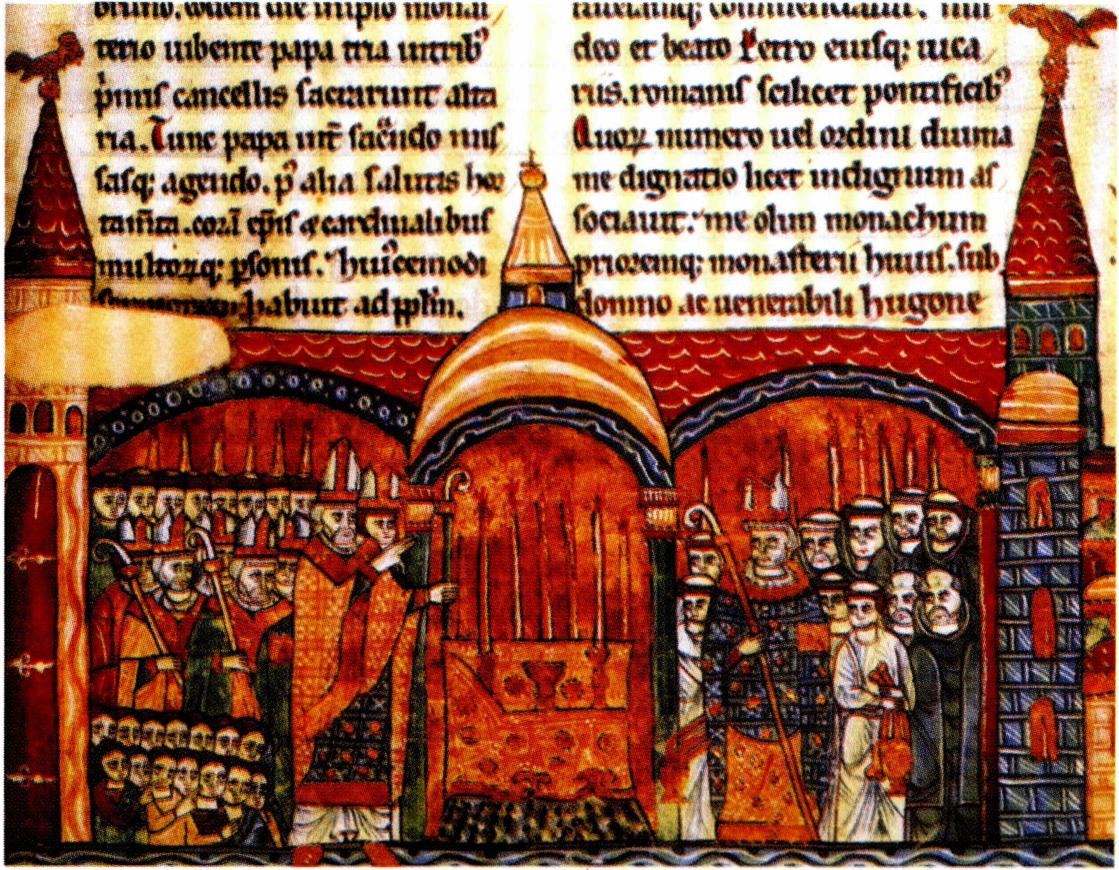 terio iubente papa tria in trib᾽
pͥmis cancellis sacrarunt alta
ria. Tunc papa int̄ sac̄ndo mis
sasq; agendo. p᾽ alia salutis hor
tam̄ta. corā ep̄is & cardinalibus
multorꝗ; ꝑsonis. huiꝰcemodi
habuit ad ppl̄m.
deo et beato Petro eiusq; uica
riis. romanis scilicet pontificib᾽
Quoꝝ numero uel ordini diuina
me dignatio licet indignum as
sociauit: me olim monachum
prioremq; monasterii huius. sub
domno ac uenerabili hugone